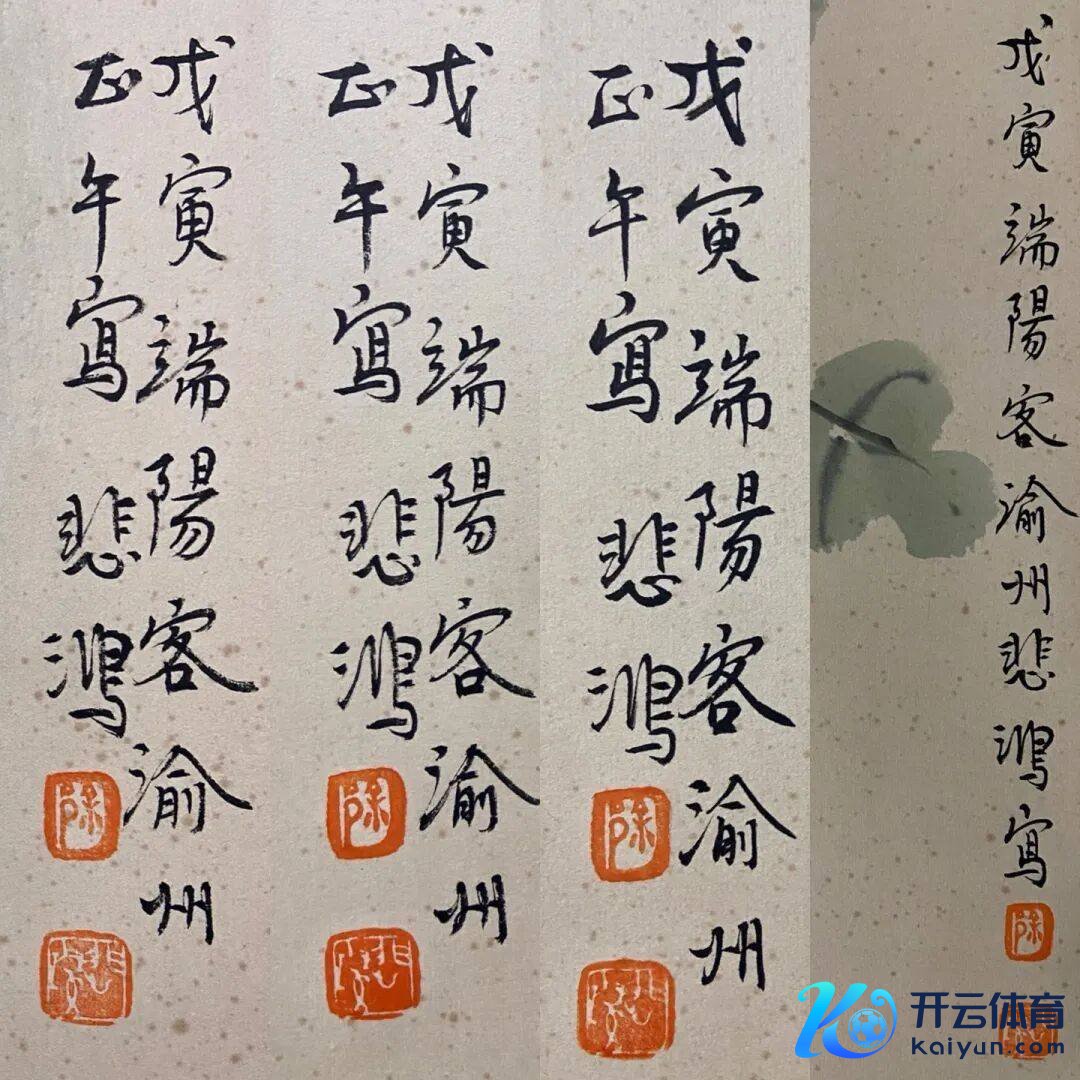 戊寅端陽客渝州
正午寫 悲鴻
徐
悲鴻
戊寅端陽客渝州
正午寫 悲鴻
徐
悲鴻
戊寅端陽客渝州
正午寫 悲鴻
徐
悲鴻
戊寅端陽客渝州悲鴻寫
徐
开云体育
Kaiyun.com